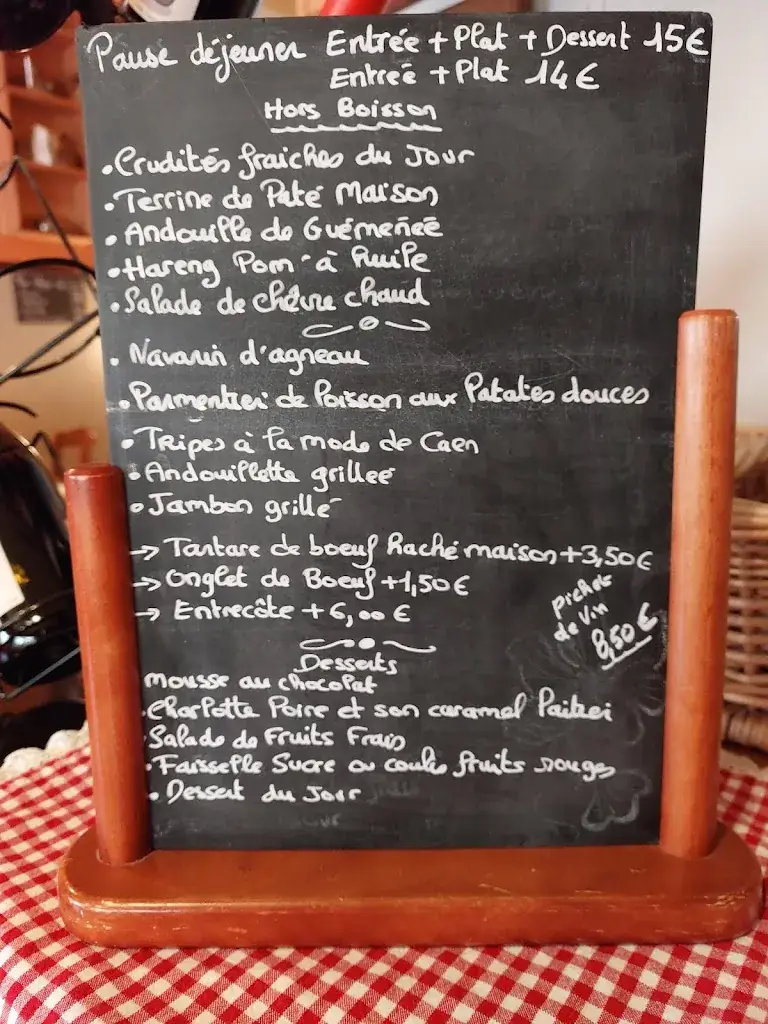 Pause déjeuner Entrée + Plat + Dessert 15€
Entreé + Plat 14€
Hors Boisson
• Crudités fraiches du Jour
• Terrine de Paté Maison
• Andouille de Guémeneé
• Hareng Pom' à huile
• Salade de chèvre chaud
• Navarin d'agneau
• Parmentier de Poisson aux Patates douces
• Tripes à la mode de Caen
• Andouillette grilleé
• Jambon grillé
→ Tartare de boeuf haché maison +3,50€
→ Onglet de Boeuf +1,50€
→ Entrecôte +6,00 €
Pichet
de Vin
8,50€
Desserts
mousse au chocolat
• Charlotte Poire et son caramel laitier
• Salade de Fruits Frais
• Faisselle Sucre ou coulis fruits rouges
• Dessert du Jour